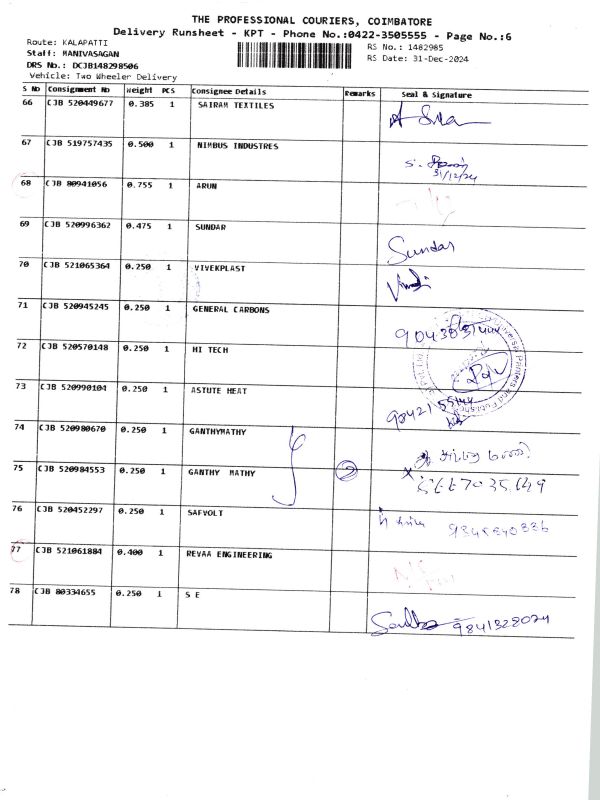 THE PROFESSIONAL COURIERS, COIMBATORE
Delivery Runsheet - KPT - Phone No.:0422-3505555 - Page No.:6
Route: KALAPATTI
RS No.: 1482985
Staff: MANIVASAGAN
RS Date: 31-Dec-2024
DRS No.: DCJB148298506
Vehicle: Two Wheeler Delivery
S No Consignment No Weight PCS Consignee Details Remarks Seal & Signature
66 CJB 520449677 0.385 1 SAIRAM TEXTILES
67 CJB 519757435 0.500 1 NIMBUS INDUSTRES
31/12/24
68 CJB 80941056 0.755 1 ARUN
69 CJB 520996362 0.475 1 SUNDAR
Sundar
70 CJB 521065364 0.250 1 VIVEKPLAST
71 CJB 520945245 0.250 1 GENERAL CARBONS
72 CJB 520570148 0.250 1 HI TECH
73 CJB 520990104 0.250 1 ASTUTE HEAT
74 CJB 520980670 0.250 1 GANTHYMATHY
75 CJB 520984553 0.250 1 GANTHY MATHY 2
76 CJB 520452297 0.250 1 SAFVOLT
77 CJB 521061884 0.400 1 REVAA ENGINEERING
78 CJB 80334655 0.250 1 S E
9841328024